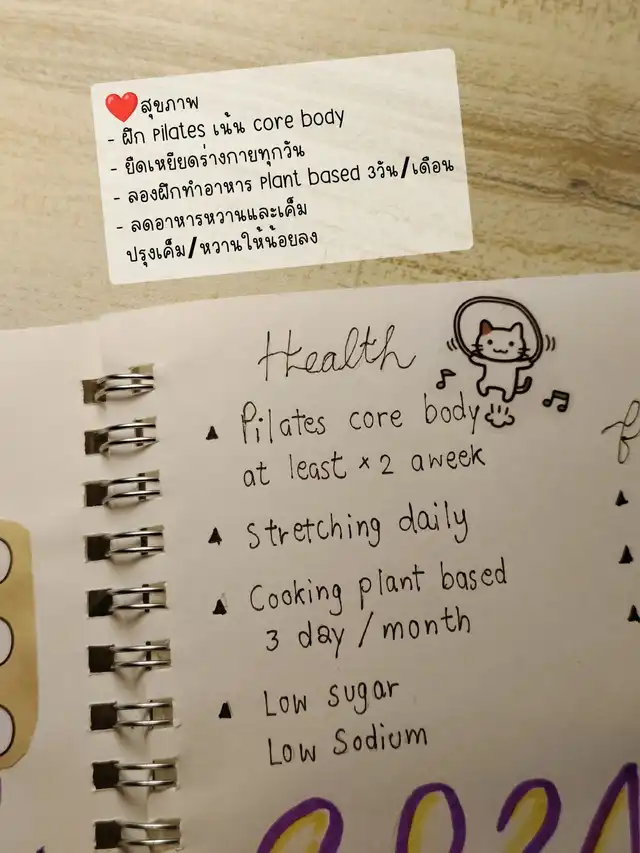 ❤️สุขภาพ
- ฝึก Pilates เน้น core body
- ยืดเหยียดร่างกายทุกวัน
- ลองฝึกทำอาหาร Plant based 3วัน/เดือน
- ลดอาหารหวานและเค็ม
ปรุงเค็ม/หวานให้น้อยลง
Health
▲ Pilates core body
at least × 2 aweek
▲ Stretching daily
▲ Cooking plant based
3 day / month
▲ Low sugar
Low Sodium